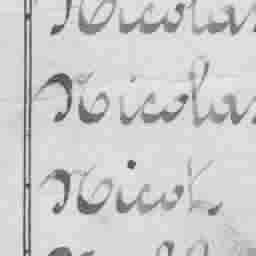 Nicolas
Nicolas
Nicot